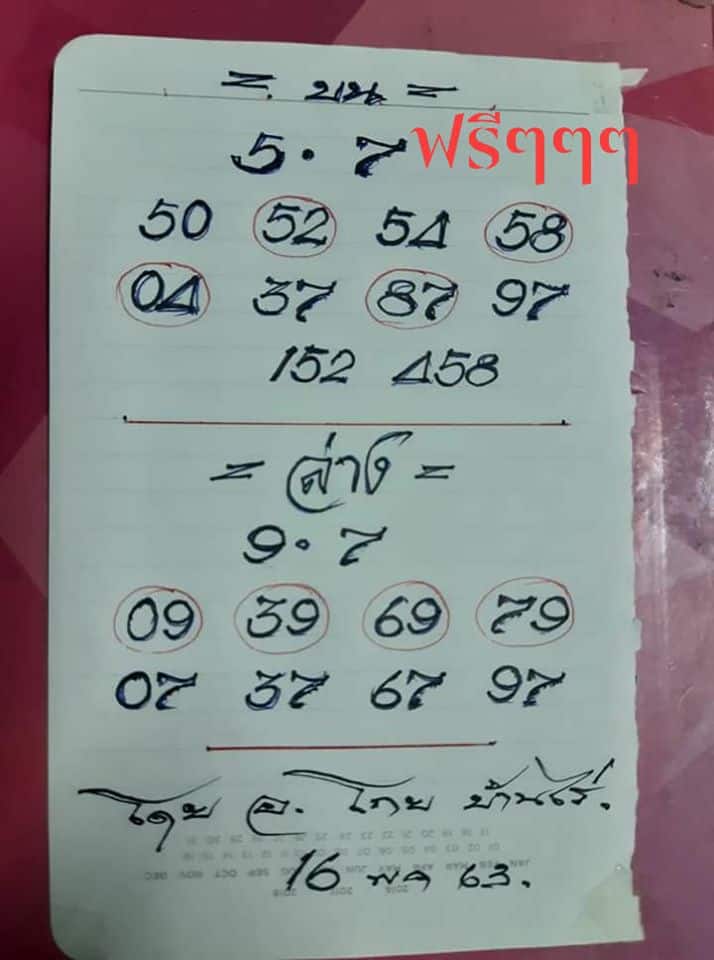 = บน =
5 · 7 ฟรีๆๆๆ
50 52 54 58
04 37 87 97
152 458
= ล่าง =
9 · 7
09 39 69 79
07 37 67 97
โดย อ. โกย บ้านไร่.
16 พค 63.